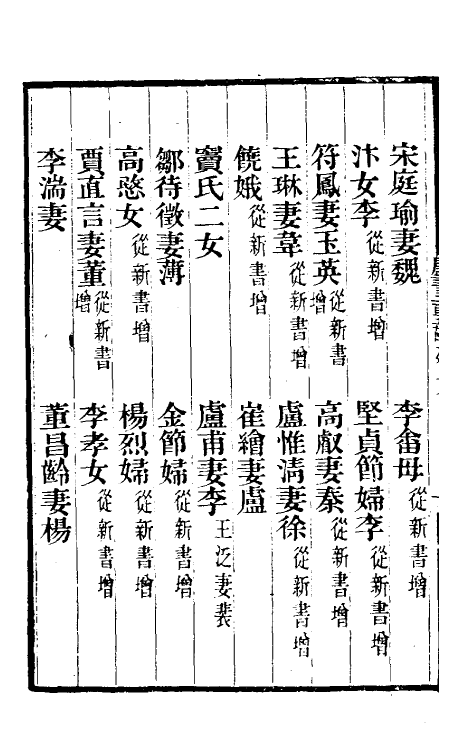 宋庭瑜妻魏 李畬母從新書增
汴女李從新書增 堅貞節婦李從新書增
符鳳妻玉英從新書增 高叡妻秦從新書增
王琳妻韋從新書增 盧惟清妻徐從新書增
饒娥從新書增 崔繪妻盧
竇氏二女 盧甫妻李王泛妻裴
鄒待徵妻薄 金節婦從新書增
高愍女從新書增 楊烈婦從新書增
賈直言妻董從新書增 李孝女從新書增
李湍妻 董昌齡妻楊